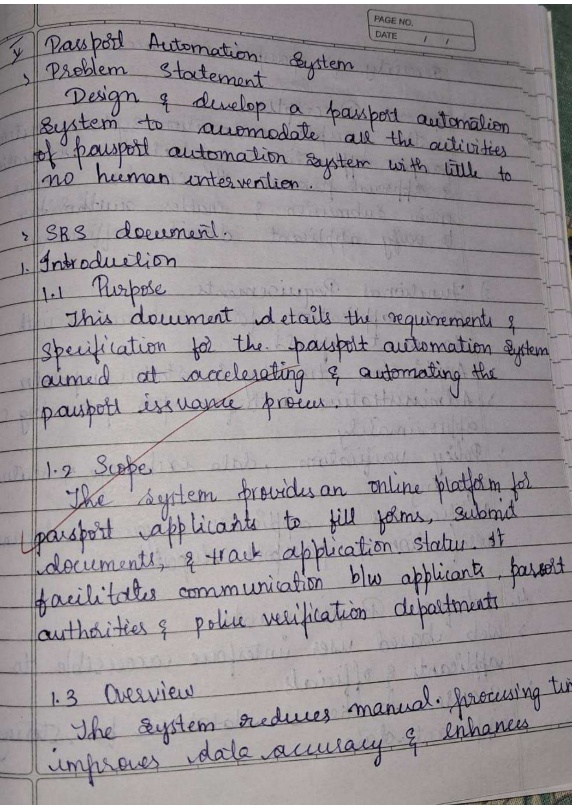 PAGE NO.
DATE / /
Passport Automation System
Problem Statement
Design & develop a passport automation
system to auomodate all the activities
of passport automation system with little to
no human intervention.
SRS document.
1. Introduction
1.1 Purpose
This document details the requirements &
specification for the passport automation system
aimed at accelerating & automating the
passport issuance process.
1.2 Scope
The system provides an online platform for
passport applicants to fill forms, submit
documents, & track application status. It
facilitates communication b/w applicants, passport
authorities & police verification departments
1.3 Overview
The system reduces manual processing time
improves data accuracy & enhances